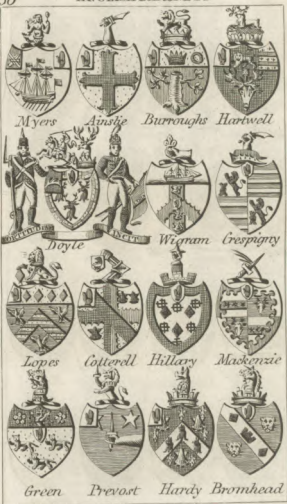 Myers Ainslie Burroughs Hartwell
Doyle Wigram Crespigny
Lopes Cotterell Hillary Mackenzie
Green Prevost Hardy Bromhead